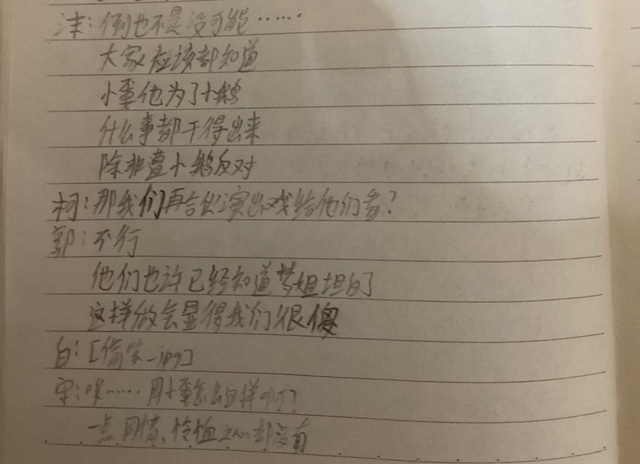 沫:倒也不是没可能……
大家应该都知道
小他为了小鹅
什么事都干得出来
除非遭小鹅反对
柯:那我们再合伙演出戏给他们看?
郭:不行
他们也许已经知道梦姐坦白了
这样做会显得我们很傻
白:[偷笑.jpg]
唉……小怎么这样啊?
一点同情、怜恤之心都没有